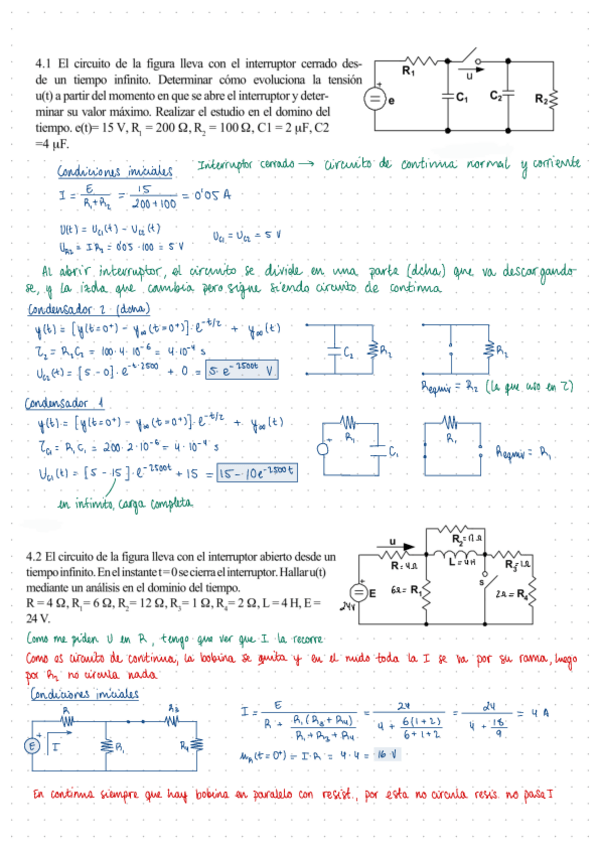 4.1 El circuito de la figura lleva con el interruptor cerrado des-
de un tiempo infinito. Determinar cómo evoluciona la tensión
u(t) a partir del momento en que se abre el interruptor y deter-
minar su valor máximo. Realizar el estudio en el domino del
tiempo. e(t)= 15 V, R1 = 200 Ω, R2 = 100 Ω, C1 = 2 µF, C2
=4 µF.
R1
u
e
C1
C2
R2
Condiciones iniciales
Interruptor cerrado → circuito de continua normal y corriente
I = E / (R1+R2) = 15 / (200+100) = 0'05 A
U(t) = Uc1(t) - Uc2(t)
UR2 = I R2 = 0'05 · 100 = 5 V
Uc1 = Uc2 = 5 V
Al abrir interruptor, el circuito se divide en una parte (dcha) que va descargando-
se, y la izda que cambia pero sigue siendo circuito de continua
Condensador 2 (dcha)
y(t) = [y(t=0+) - y∞(t=0+)]·e^-t/τ + y∞(t)
τ2 = R2C2 = 100·4·10^-6 = 4·10^-4 s
Uc2(t) = [5 - 0]·e^-t·2500 + 0 = 5 e^-2500t V
C2
R2
R2
Requiv = R2 (la que uso en τ)
Condensador 1
y(t) = [y(t=0+) - y∞(t=0+)]·e^-t/τ + y∞(t)
τc1 = R1C1 = 200·2·10^-6 = 4·10^-4 s
Uc1(t) = [5 - 15]·e^-2500t + 15 = 15 - 10e^-2500t
en infinito, carga completa
R1
C1
R1
Requiv = R1
4.2 El circuito de la figura lleva con el interruptor abierto desde un
tiempo infinito. En el instante t=0 se cierra el interruptor. Hallar u(t)
mediante un análisis en el dominio del tiempo.
R = 4 Ω, R1= 6 Ω, R2= 12 Ω, R3= 1 Ω, R4= 2 Ω, L = 4 H, E =
24 V.
u
R=4Ω
R2=12Ω
L=4H
R3=1Ω
E
24V
6Ω= R1
s
2Ω= R4
Como me piden U en R, tengo que ver que I la recorre
Como es circuito de continua, la bobina se quita y en el nudo toda la I se va por su rama, luego
por R2 no circula nada
Condiciones iniciales
R
R3
E
I
R1
R4
I = E / (R + R1(R3+R4) / (R1+R3+R4)) = 24 / (4 + 6(1+2) / (6+1+2)) = 24 / (4 + 18/9) = 4 A
uR(t=0+) = I·R = 4·4 = 16 V
En continua siempre que hay bobina en paralelo con resist., por esta no circula resis no pasa I